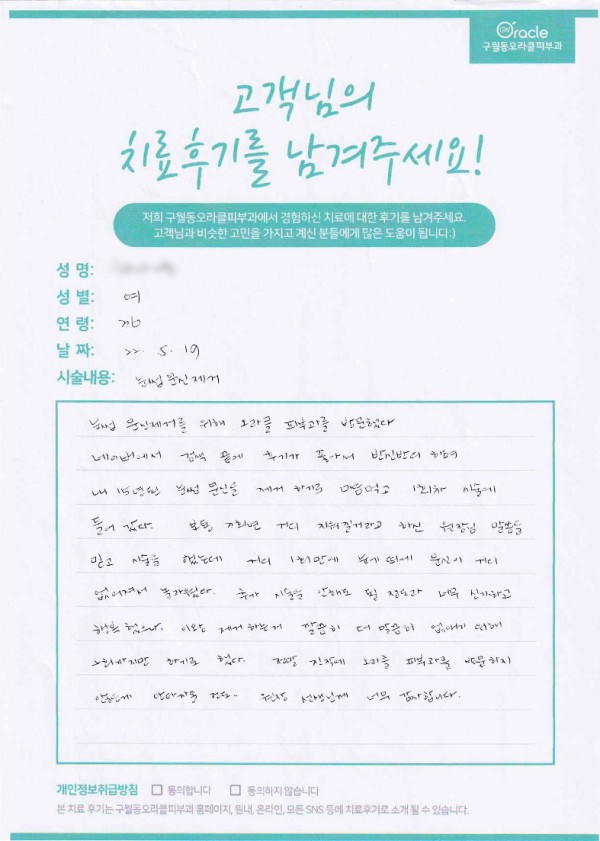 Oracle
구월동오라클피부과
고객님의
치료후기를 남겨주세요!
저희 구월동오라클피부과에서 경험하신 치료에 대한 후기를 남겨주세요.
고객님과 비슷한 고민을 가지고 계신 분들에게 많은 도움이 됩니다:)
성 명:
성 별: 여
연 령:
날 짜: 22. 5. 19
시술내용: 눈썹 문신제거
눈썹 문신제거를 위해 오라클 피부과를 방문했다
네이버에서 검색 끝에 후기가 좋아서 반신반의 하며
내 15년된 눈썹 문신을 제거 하기로 마음먹고 1회차 시술에
들어 갔다. 보통 거의 지워질거라고 하신 원장님 말씀을
믿고 시술을 했는데 거의 1회만에 눈에 띄게 문신이 거의
없어져서 놀라웠다. 추가 시술을 안해도 될 정도라 너무 신기하고
행복 했으나, 이왕 제거하는거 깔끔히 더 말끔히 없애기 위해
하기로 했다. 정말 진작에 오라클 피부과를 방문하지
안한게 원장 선생님께 너무 감사합니다.
개인정보취급방침 동의합니다 동의하지 않습니다
본 치료 후기는 구월동오라클피부과 홈페이지, 원내, 온라인, 모든 SNS 등에 치료후기로 소개 될 수 있습니다.